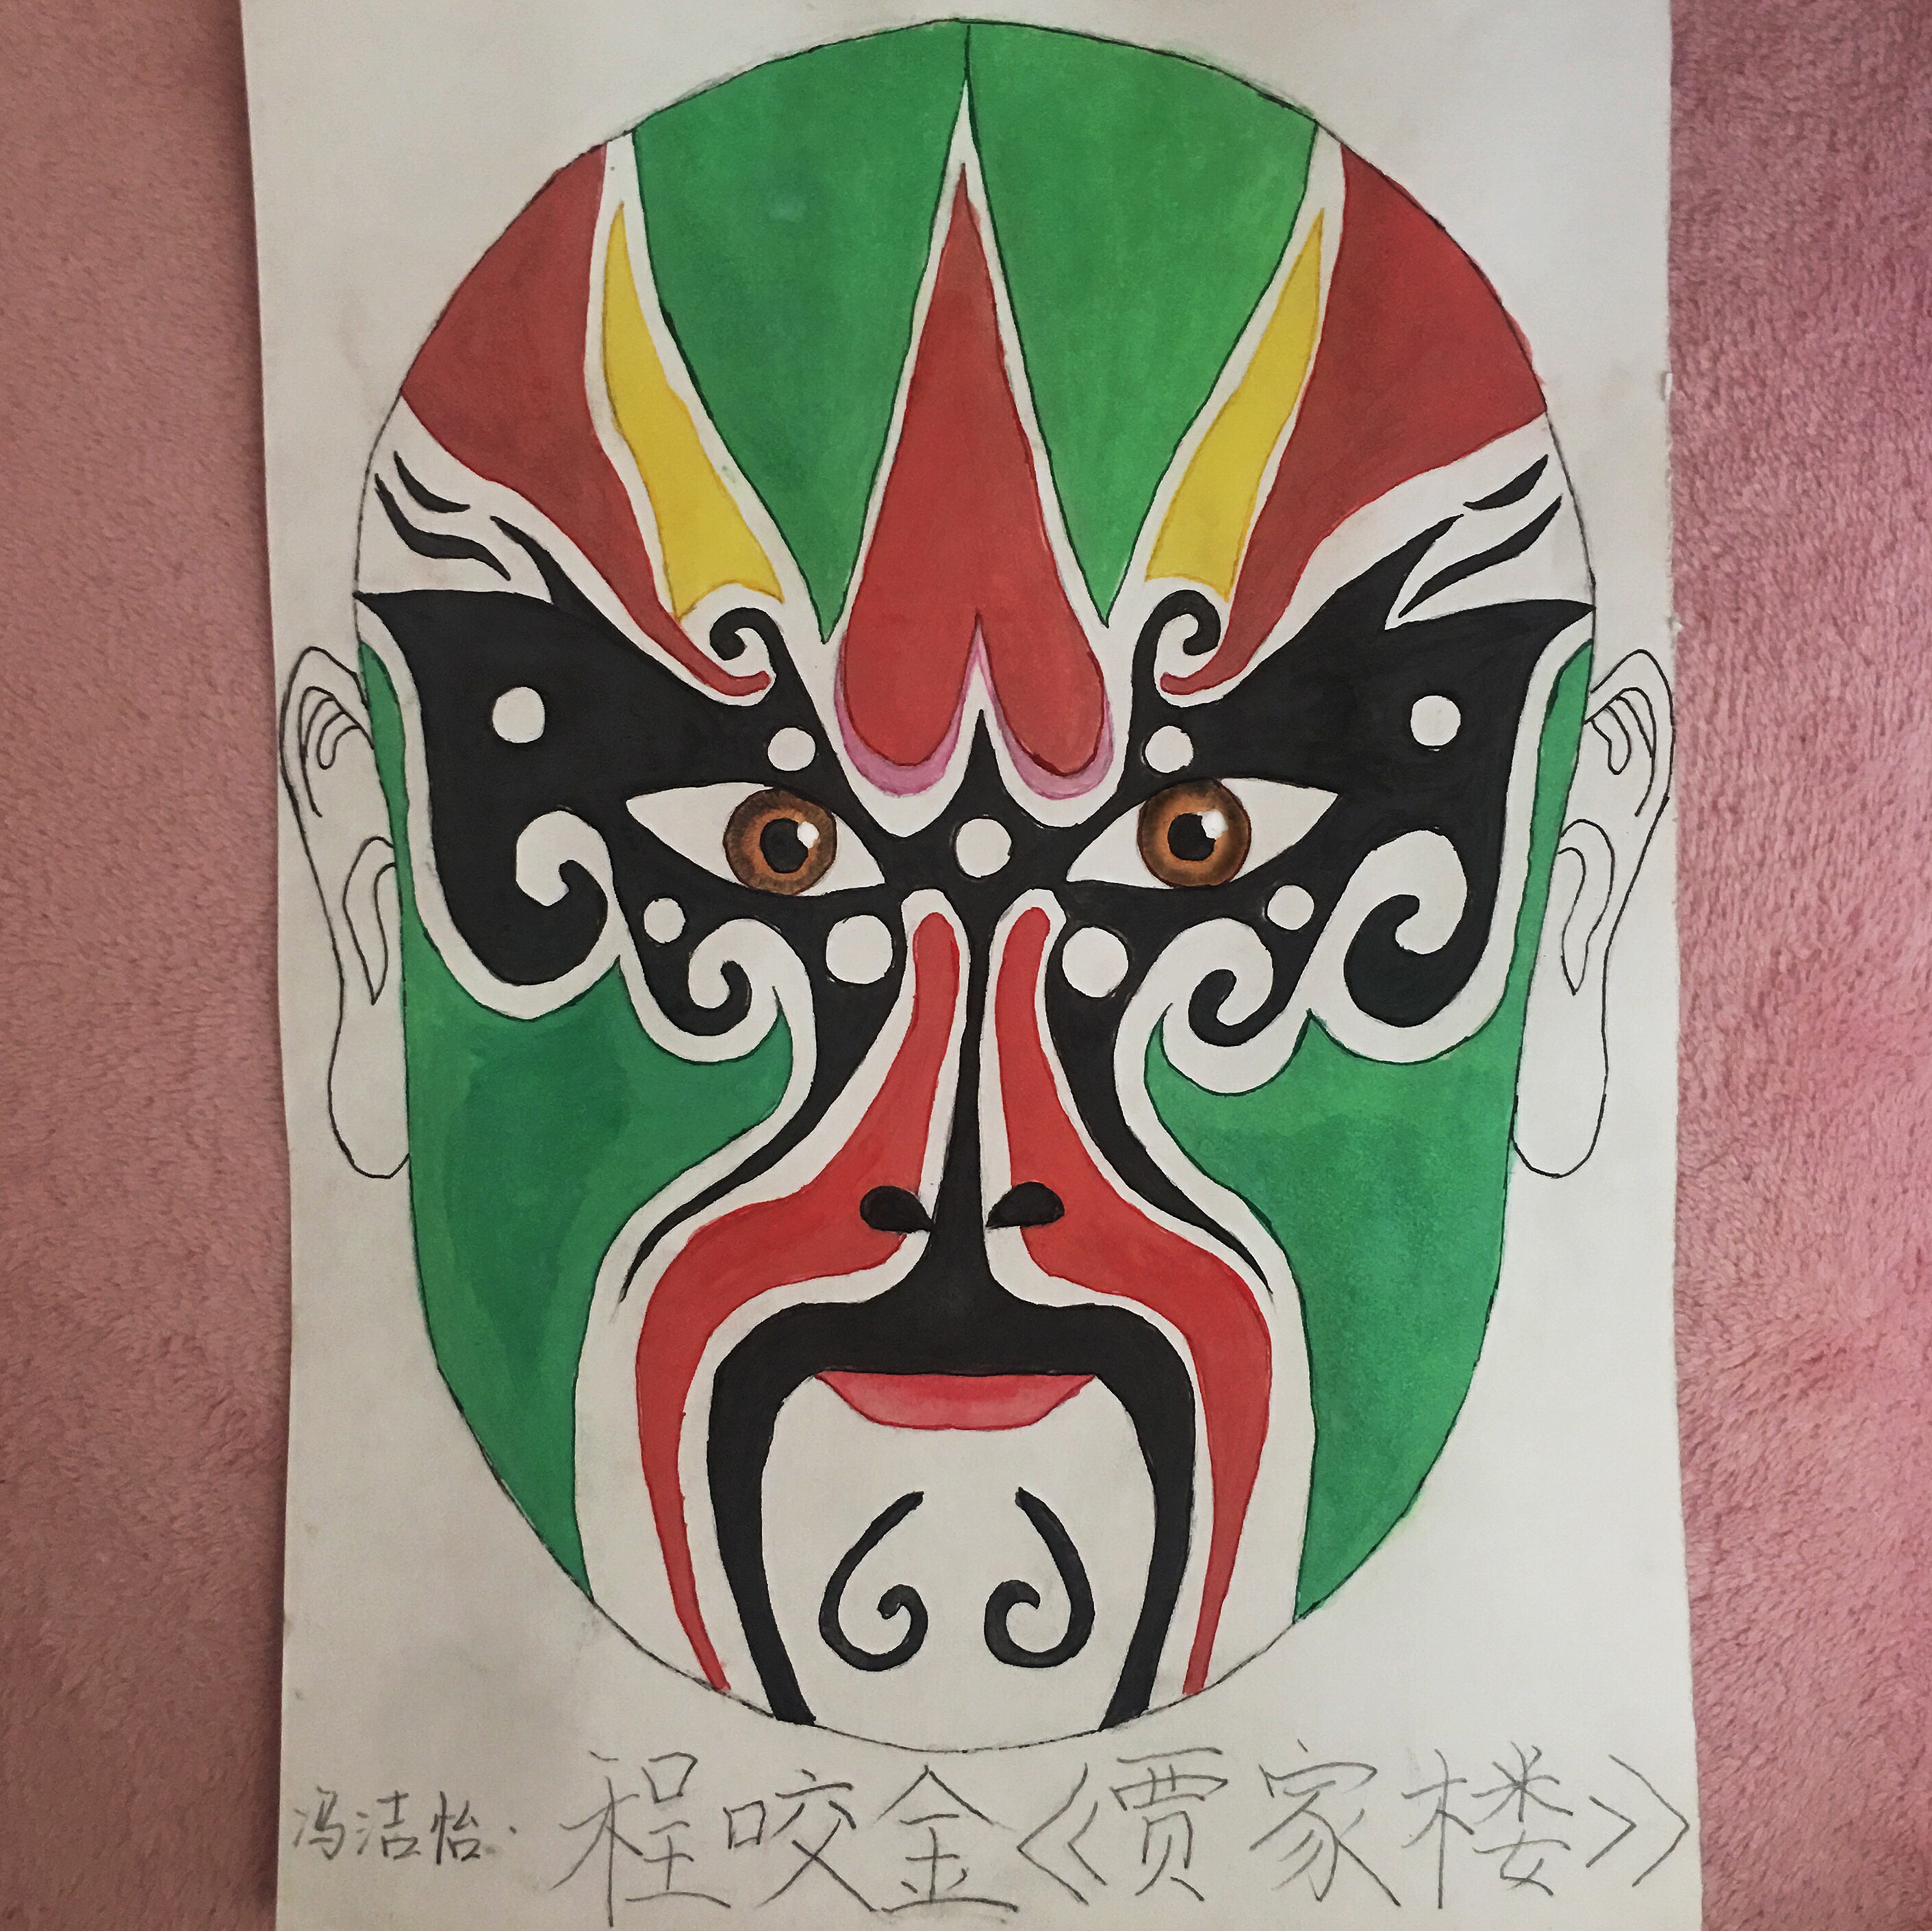 冯洁怡. 程咬金《贾家楼》